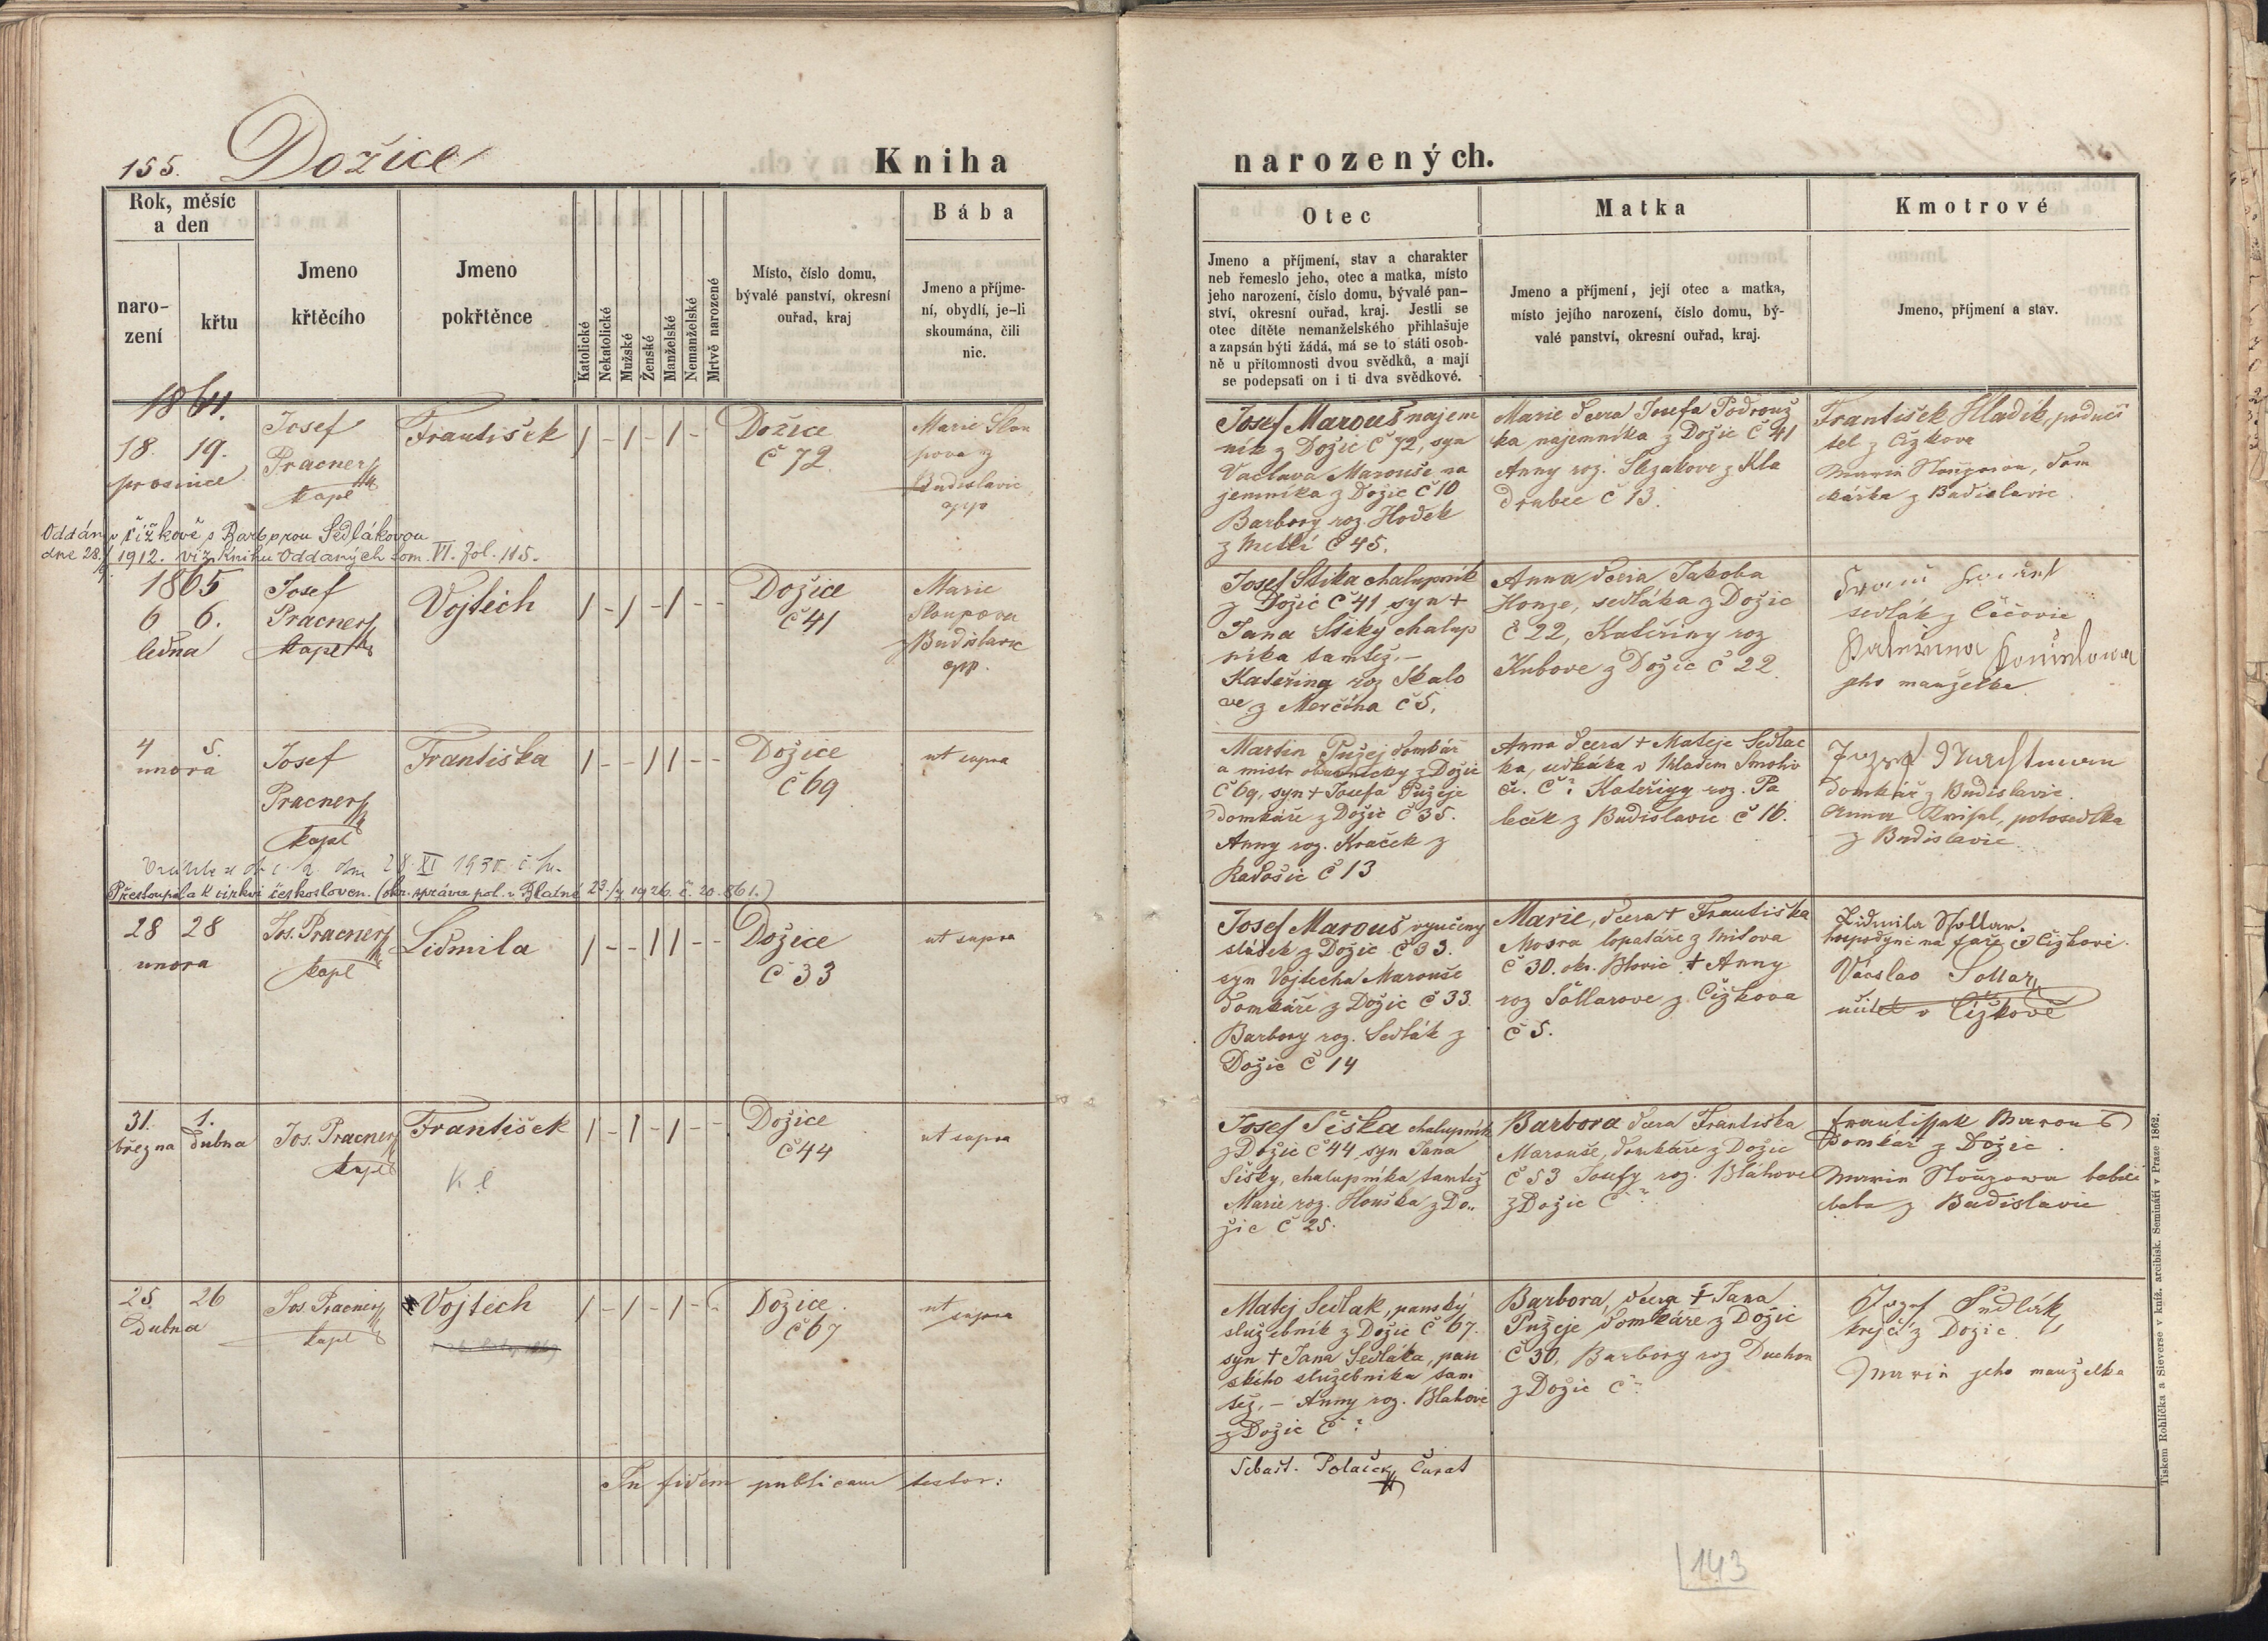 155. Dožice
Kniha
narozených.
Rok, měsíc
a den
naro-
zení
křtu
Jmeno
křtěcího
Jmeno
pokřtěnce
Katolické
Nekatolické
Mužské
Ženské
Manželské
Nemanželské
Mrtvě narozené
Místo, číslo domu,
bývalé panství, okresní
ouřad, kraj
Bába
Jmeno a příjme-
ní, obydlí, je-li
skoumána, čili
nic.
Otec
Jmeno a příjmení, stav a charakter
neb řemeslo jeho, otec a matka, místo
jeho narození, číslo domu, bývalé pan-
ství, okresní ouřad, kraj. Jestli se
otec dítěte nemanželského přihlašuje
a zapsán býti žádá, má se to státi osob-
ně u přítomnosti dvou svědků, a mají
se podepsati on i ti dva svědkové.
Matka
Jmeno a příjmení, její otec a matka,
místo jejího narození, číslo domu, bý-
valé panství, okresní ouřad, kraj.
Kmotrové
Jmeno, příjmení a stav.
1864.
18. 19.
prosince
Josef
Pracner
kapl
František
Dožice
č 72.
Marie Slou
pova z
Budislavic
app
Josef Marouš najem
ník z Dožic č 72, syn
Vaclava Marouše na
jemníka z Dožic č 10
Barbory roz. Hodek
z Metlí č 45.
Marie dcera Josefa Podrouž
ka najemníka z Dožic č 41
Anny roz. Slezakove z Kla
drubec č 13.
František Hladík, poduči
tel z Čížkova
Marie Sloupova, dom
kářka z Budislavic.
Oddán v Čížkově s Barborou Sedlákovou
dne 28./ 1912. viz Knihu Oddaných tom. VI. fol. 115.
1865
6 6.
ledna
Josef
Pracner
kapl
Vojtěch
Dožice
č 41
Marie
Sloupova
z Budislavic
app.
Josef Sika chalupník
z Dožic č 41 syn +
Jana Siky chalup
níka tamtéž,-
Kateřina roz Skalo
ve z Merčína č 5.
Anna dcera Jakoba
Honze, sedláka z Dožic
č 22, Kateřiny roz
Kubove z Dožic č 22.
sedlák z Čečovic
Kateřina
jeho manželka
4 5.
unora
Josef
Pracner
kapl
Františka
Dožice
č 69
ut supra
Martin Pužej domkář
a mistr obuvnický z Dožic
č 69, syn + Josefa Pužeje
domkáře z Dožic č 35.
Anny roz. Kraček z
Radošic č 13
Anna dcera + Mateje Sedlač
ka, sedláka v Mladém Smoliv
ci. č ? Kateřiny roz. Pa
leček z Budislavic č 16.
Josef
domkář z Budislavic.
Anna, polosedlka
z Budislavic.
28. XI 1930
Přestoupila k církvi českosloven. (okr. správa pol. v Blatné 23./4 1926. č. 20.861.)
28 28
unora
Jos. Pracner
kapl
Lidmila
Dožice
č 33
ut supra
Josef Marouš vyučený
sládek z Dožic č 33.
syn Vojtecha Marouše
domkáře z Dožic č 33.
Barbory roz. Sedlák z
Dožic č 14
Marie, dcera + Františka
Mosra lopatáře z Mítova
č 30. okr. Blovic + Anny
roz Söllarove z Čížkova
č 5.
Lidmila Söllar.
hospodyně na faře v Čížkově.
Václav Sollar
učitel v Čížkově
31. 1.
března dubna
Jos. Pracner
kapl
František
Dožice
č 44
ut supra
Josef Šiška chalupník
z Dožic č 44 syn Jana
Šišky, chalupníka tamtéž
Marie roz. Houška z Do-
žic č 25.
Barbora dcera Františka
Marouše, domkáře z Dožic
č 53 Josefy roz. Bláhove
z Dožic č ?
František Marouš
Domkář z Dožic.
Marie Sloupowa babič
baba z Budislavic
25. 26
Dubna
Jos. Pracner
kapl
Vojtěch
Dožice.
č 67
ut
supra
Matej Sedlak, panský
služebník z Dožic č 67.
syn + Jana Sedláka, pan
ského služebníka tam
též, - Anny roz. Blahove
z Dožic č ?
Barbora, dcera + Jana
Pužeje domkáře z Dožic
č 30, Barbory roz Duchon
z Dožic č ?
Jozef Sedlák,
krejčí z Dožic.
Marie jeho manželka
In fidem publicam testor:
Sebast. Polaček Curat
143
Tiskem Rohlíčka a Sieverse v kníž. arcibisk. Semináři v Praze 1862.